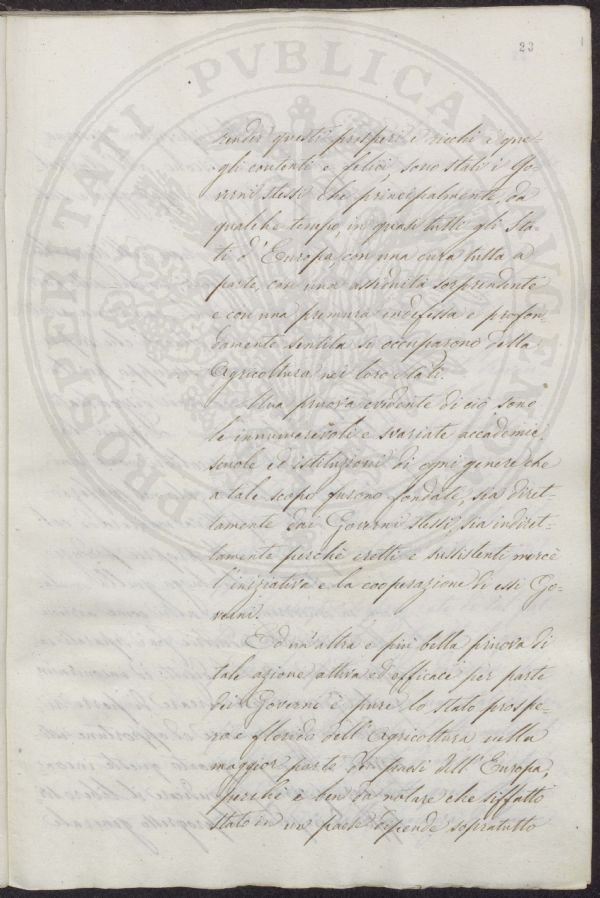 23
PROSPERITATI PVBLICAE AVGENDAE
render questi prosperi e ricchi e que-
gli contenti e felici, sono stati i Go-
verni stessi che principalmente, da
qualche tempo, in quasi tutti gli Sta-
ti d'Europa, con una cura tutta a
parte, con una assiduità sorprendente
e con una premura indefessa e profon-
damente sentita si occuparono della
Agricoltura nei loro stati.
Una pruova evidente di ciò sono
le innumerevoli e svariate accademie,
scuole ed istituzioni di ogni genere che
a tale scopo furono fondate, sia diret-
tamente dai Governi stessi, sia indiret-
tamente perchè eretti e sussistenti mercè
l'iniziativa e la cooperazione di essi Go-
verni.
Ed un'altra e più bella pruova di
tale azione attiva ed efficace per parte
dei Governi è pure lo stato prospe-
ro e florido dell'Agricoltura nella
maggior parte dei paesi dell'Europa,
perchè è ben da notare che siffatto
stato in un paese dipende sopratutto